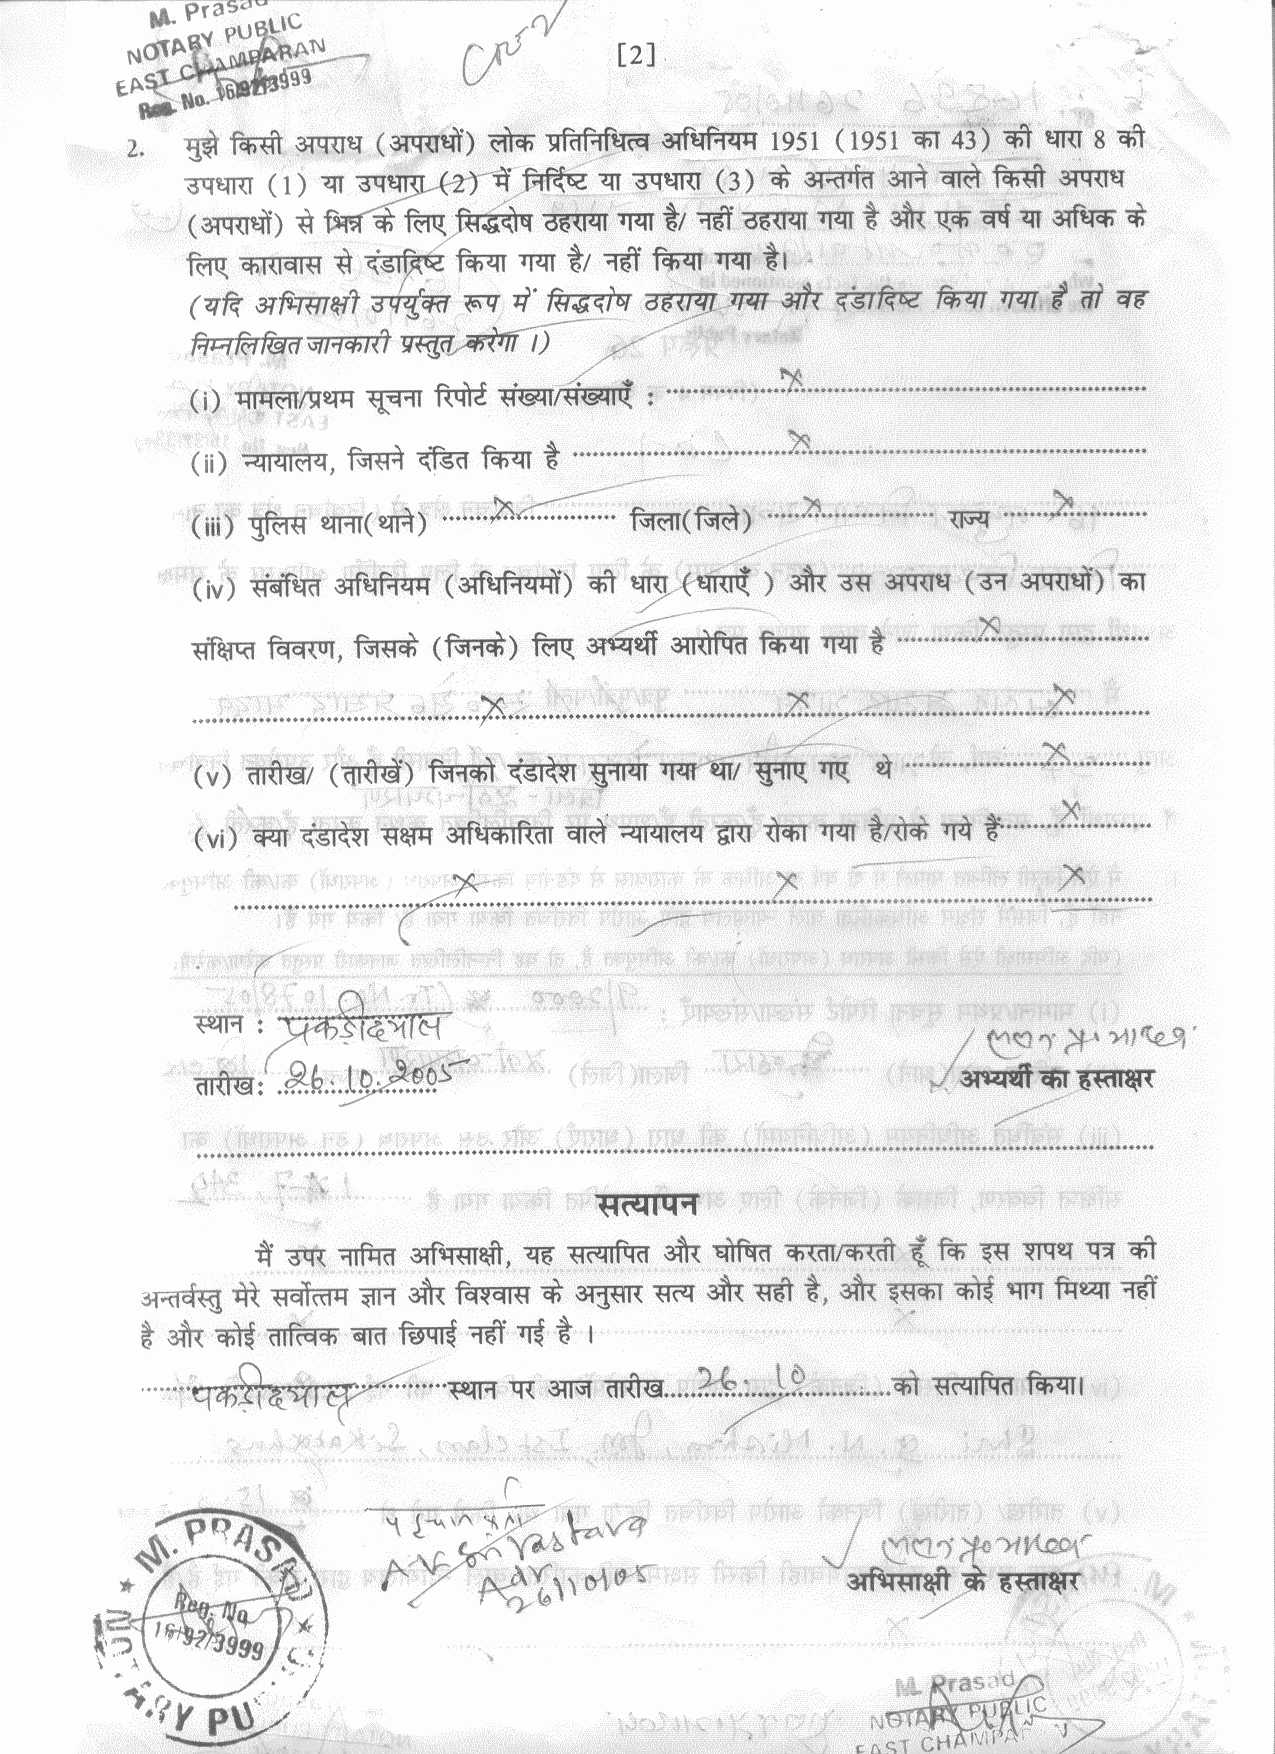 M. Prasad
NOTARY PUBLIC
EAST CHAMPARAN
Reg. No. 16192/3999
[2]
2. मुझे किसी अपराध (अपराधों) लोक प्रतिनिधित्व अधिनियम 1951 (1951 का 43) की धारा 8 की
उपधारा (1) या उपधारा (2) में निर्दिष्ट या उपधारा (3) के अन्तर्गत आने वाले किसी अपराध
(अपराधों) से भिन्न के लिए सिद्धदोष ठहराया गया है/ नहीं ठहराया गया है और एक वर्ष या अधिक के
लिए कारावास से दंडादिष्ट किया गया है/ नहीं किया गया है।
(यदि अभिसाक्षी उपर्युक्त रूप में सिद्धदोष ठहराया गया और दंडादिष्ट किया गया है तो वह
निम्नलिखित जानकारी प्रस्तुत करेगा ।)
(i) मामला/प्रथम सूचना रिपोर्ट संख्या/संख्याएँ : x
(ii) न्यायालय, जिसने दंडित किया है x
(iii) पुलिस थाना(थाने) x जिला(जिले) x राज्य x
(iv) संबंधित अधिनियम (अधिनियमों) की धारा (धाराएँ ) और उस अपराध (उन अपराधों) का
संक्षिप्त विवरण, जिसके (जिनके) लिए अभ्यर्थी आरोपित किया गया है x
x x x
(v) तारीख/ (तारीखें) जिनको दंडादेश सुनाया गया था/ सुनाए गए थे x
(vi) क्या दंडादेश सक्षम अधिकारिता वाले न्यायालय द्वारा रोका गया है/रोके गये हैं x
x x x
स्थान : पकड़ीदयाल
तारीख: 26.10.2005
अभ्यर्थी का हस्ताक्षर
सत्यापन
मैं उपर नामित अभिसाक्षी, यह सत्यापित और घोषित करता/करती हूँ कि इस शपथ पत्र की
अन्तर्वस्तु मेरे सर्वोत्तम ज्ञान और विश्वास के अनुसार सत्य और सही है, और इसका कोई भाग मिथ्या नहीं
है और कोई तात्विक बात छिपाई नहीं गई है ।
पकड़ीदयाल स्थान पर आज तारीख 26 10 को सत्यापित किया।
A.K. Srivastava
Adv
26/10/05
अभिसाक्षी के हस्ताक्षर
M. PRASAD
Reg. No
16192/3999
NOTARY PU
M. Prasad
NOTARY PUBLIC
EAST CHAMPARAN